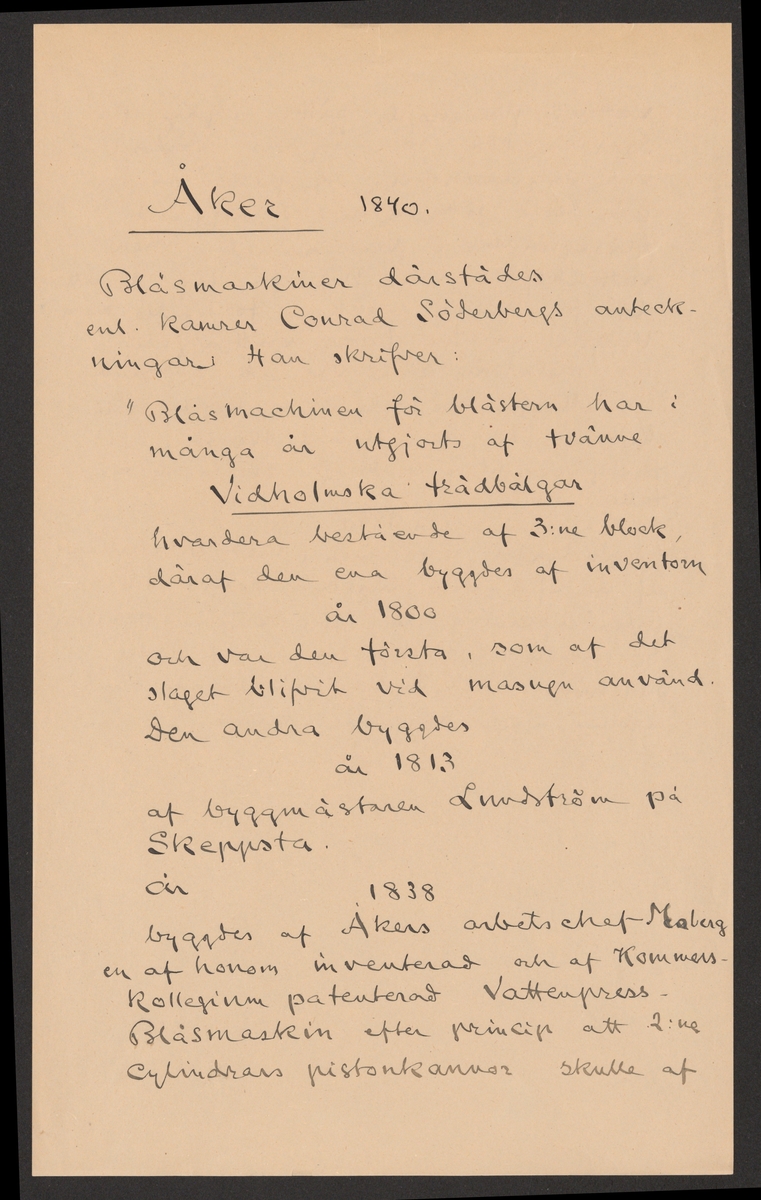 Åker 1840.
Blåsmaskiner därstädes
enl. kamrer Conrad Söderbergs anteck-
ningar. Han skrifver:
"Blåsmachinen för blästern har i
många år utgjorts af tvänne
Vidholmska trädbälgar
hvardera bestående af 3:ne block,
däraf den ena byggdes af inventorn
år 1800
och var den första, som af det
slaget blifvit vid masugn använd.
Den andra byggdes
år 1813
af byggmästaren Lundström på
Skeppsta.
År 1838
byggdes af Åkers arbetschef Moberg
en af honom inventerad och af Kommers-
Kollegium patenterad Vattenpress-
Blåsmaskin efter princip att 2:ne
Cylindrars pistonkannor skulle af